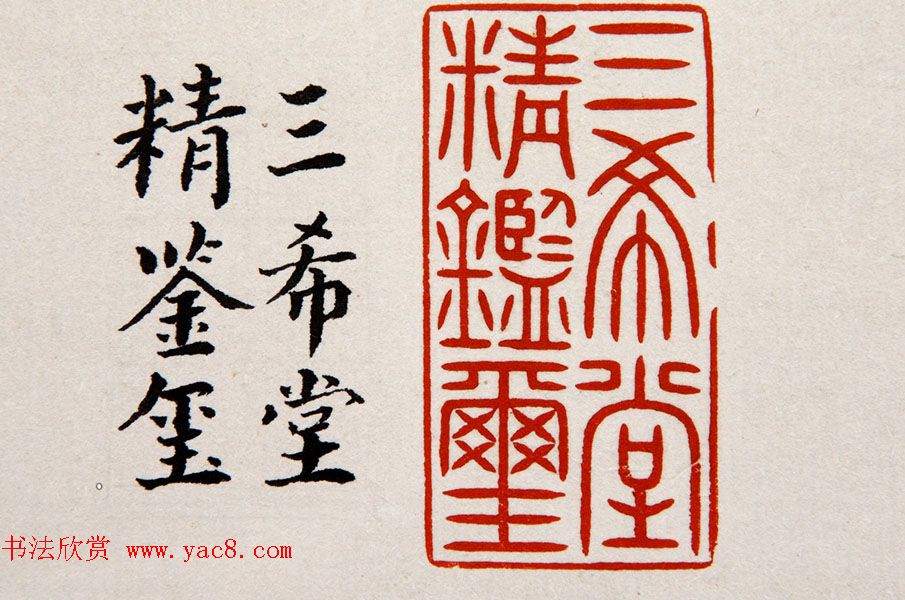 三希堂
精鑑璽
三希堂
精鉴玺
书法欣赏 www.yac8.com